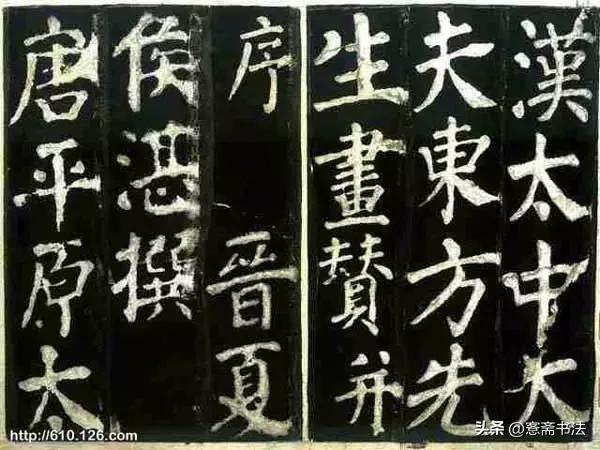 漢太中大
夫東方先
生畫賛并
序 晉夏
侯湛撰
唐平原太
http://610.126.com
头条 @窓斋书法